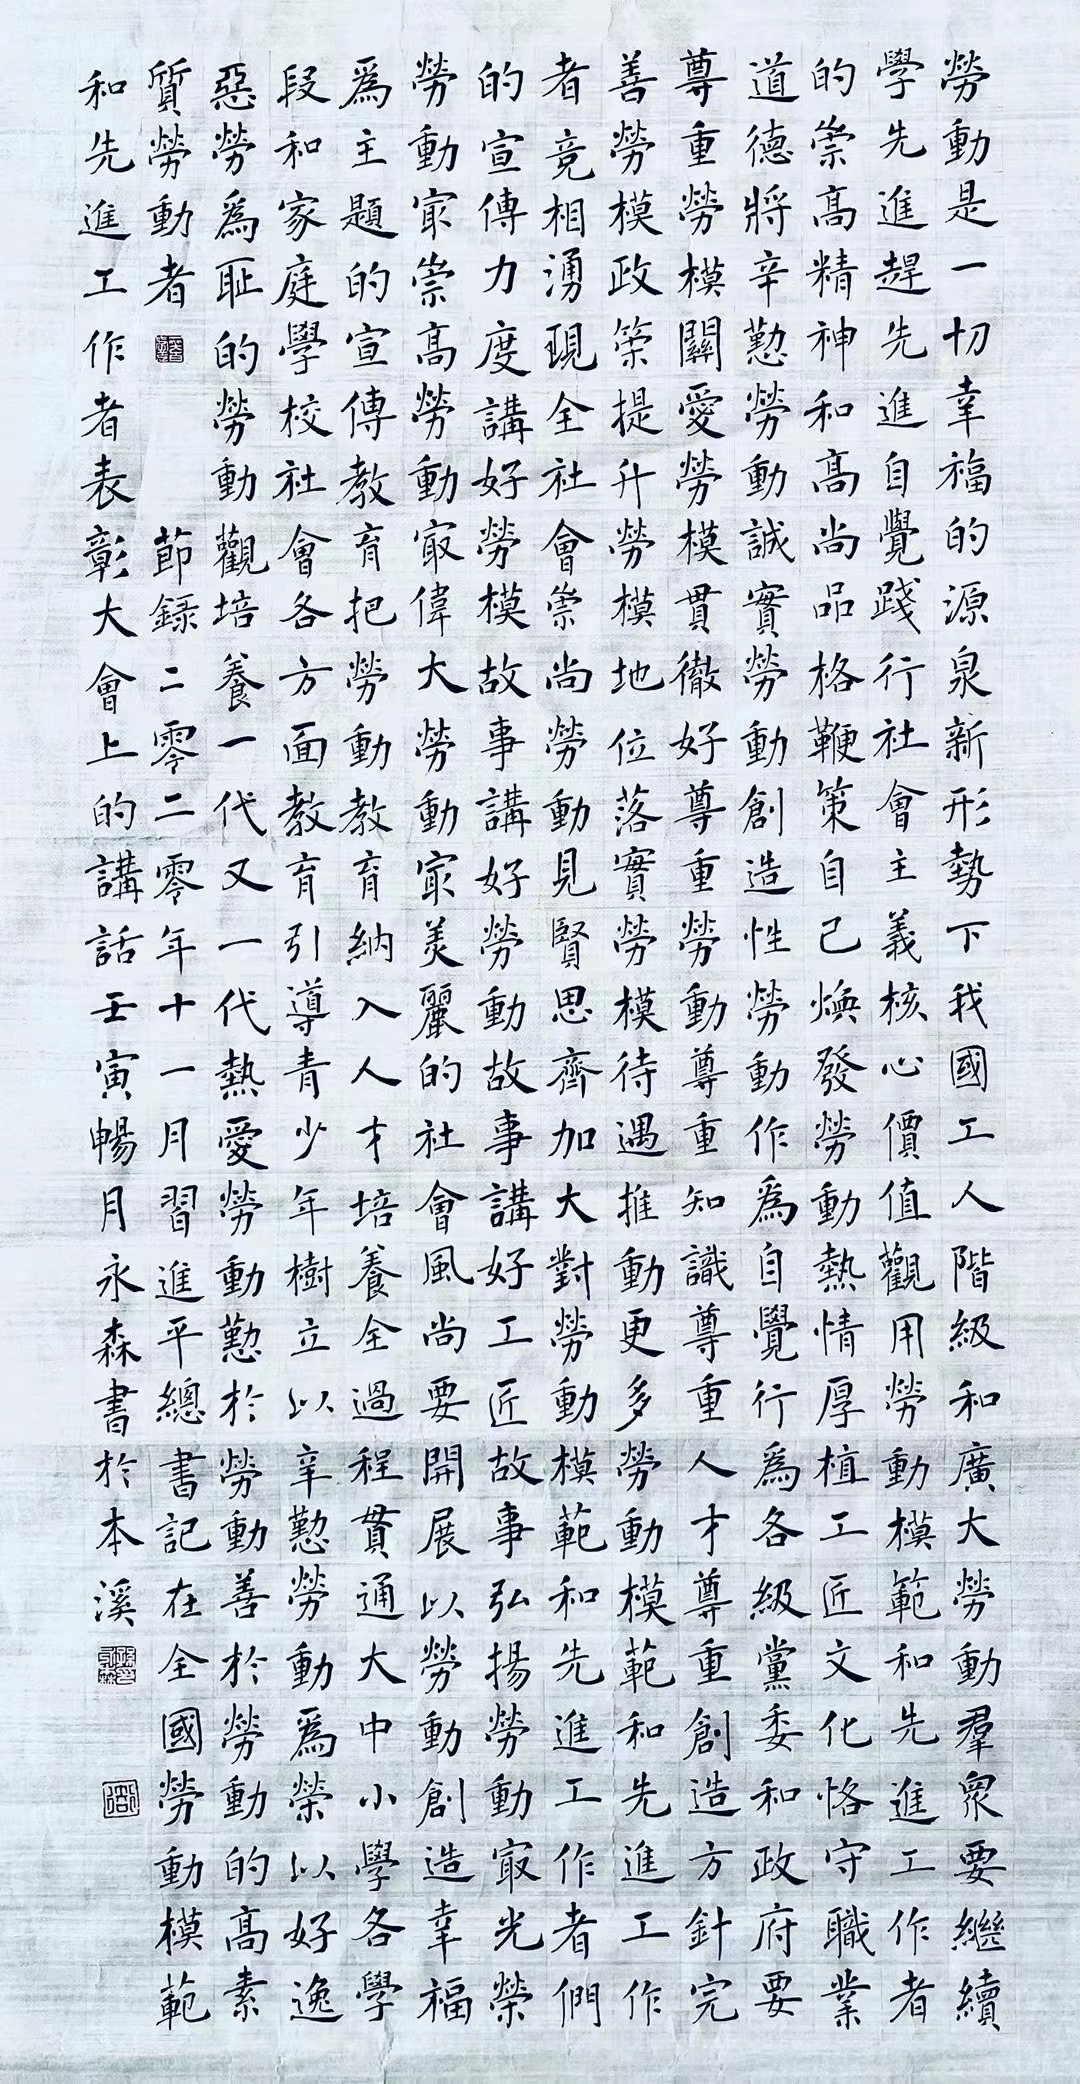 勞動是一切幸福的源泉新形勢下我國工人階級和廣大勞動羣眾要繼續
學先進趕先進自覺踐行社會主義核心價值觀用勞動模範和先進工作者
的崇高精神和高尚品格鞭策自己煥發勞動熱情厚植工匠文化恪守職業
道德將辛懃勞動誠實勞動創造性勞動作爲自覺行爲各級黨委和政府要
尊重勞模關愛勞模貫徹好尊重勞動尊重知識尊重人才尊重創造方針完
善勞模政策提升勞模地位落實勞模待遇推動更多勞動模範和先進工作
者竟相湧現全社會崇尚勞動見賢思齊加大對勞動模範和先進工作者們
的宣傳力度講好勞模故事講好勞動故事講好工匠故事弘揚勞動冣光榮
勞動冣崇高勞動冣偉大勞動冣美麗的社會風尚要開展以勞動創造幸福
爲主題的宣傳教育把勞動教育納入人才培養全過程貫通大中小學各學
段和家庭學校社會各方面教育引導青少年樹立以辛懃勞動爲榮以好逸
惡勞爲恥的勞動觀培養一代又一代熱愛勞動懃於勞動善於勞動的高素
質勞動者 節錄二零二零年十一月習進平總書記在全國勞動模範
和先進工作者表彰大會上的講話壬寅暢月永森書於本溪